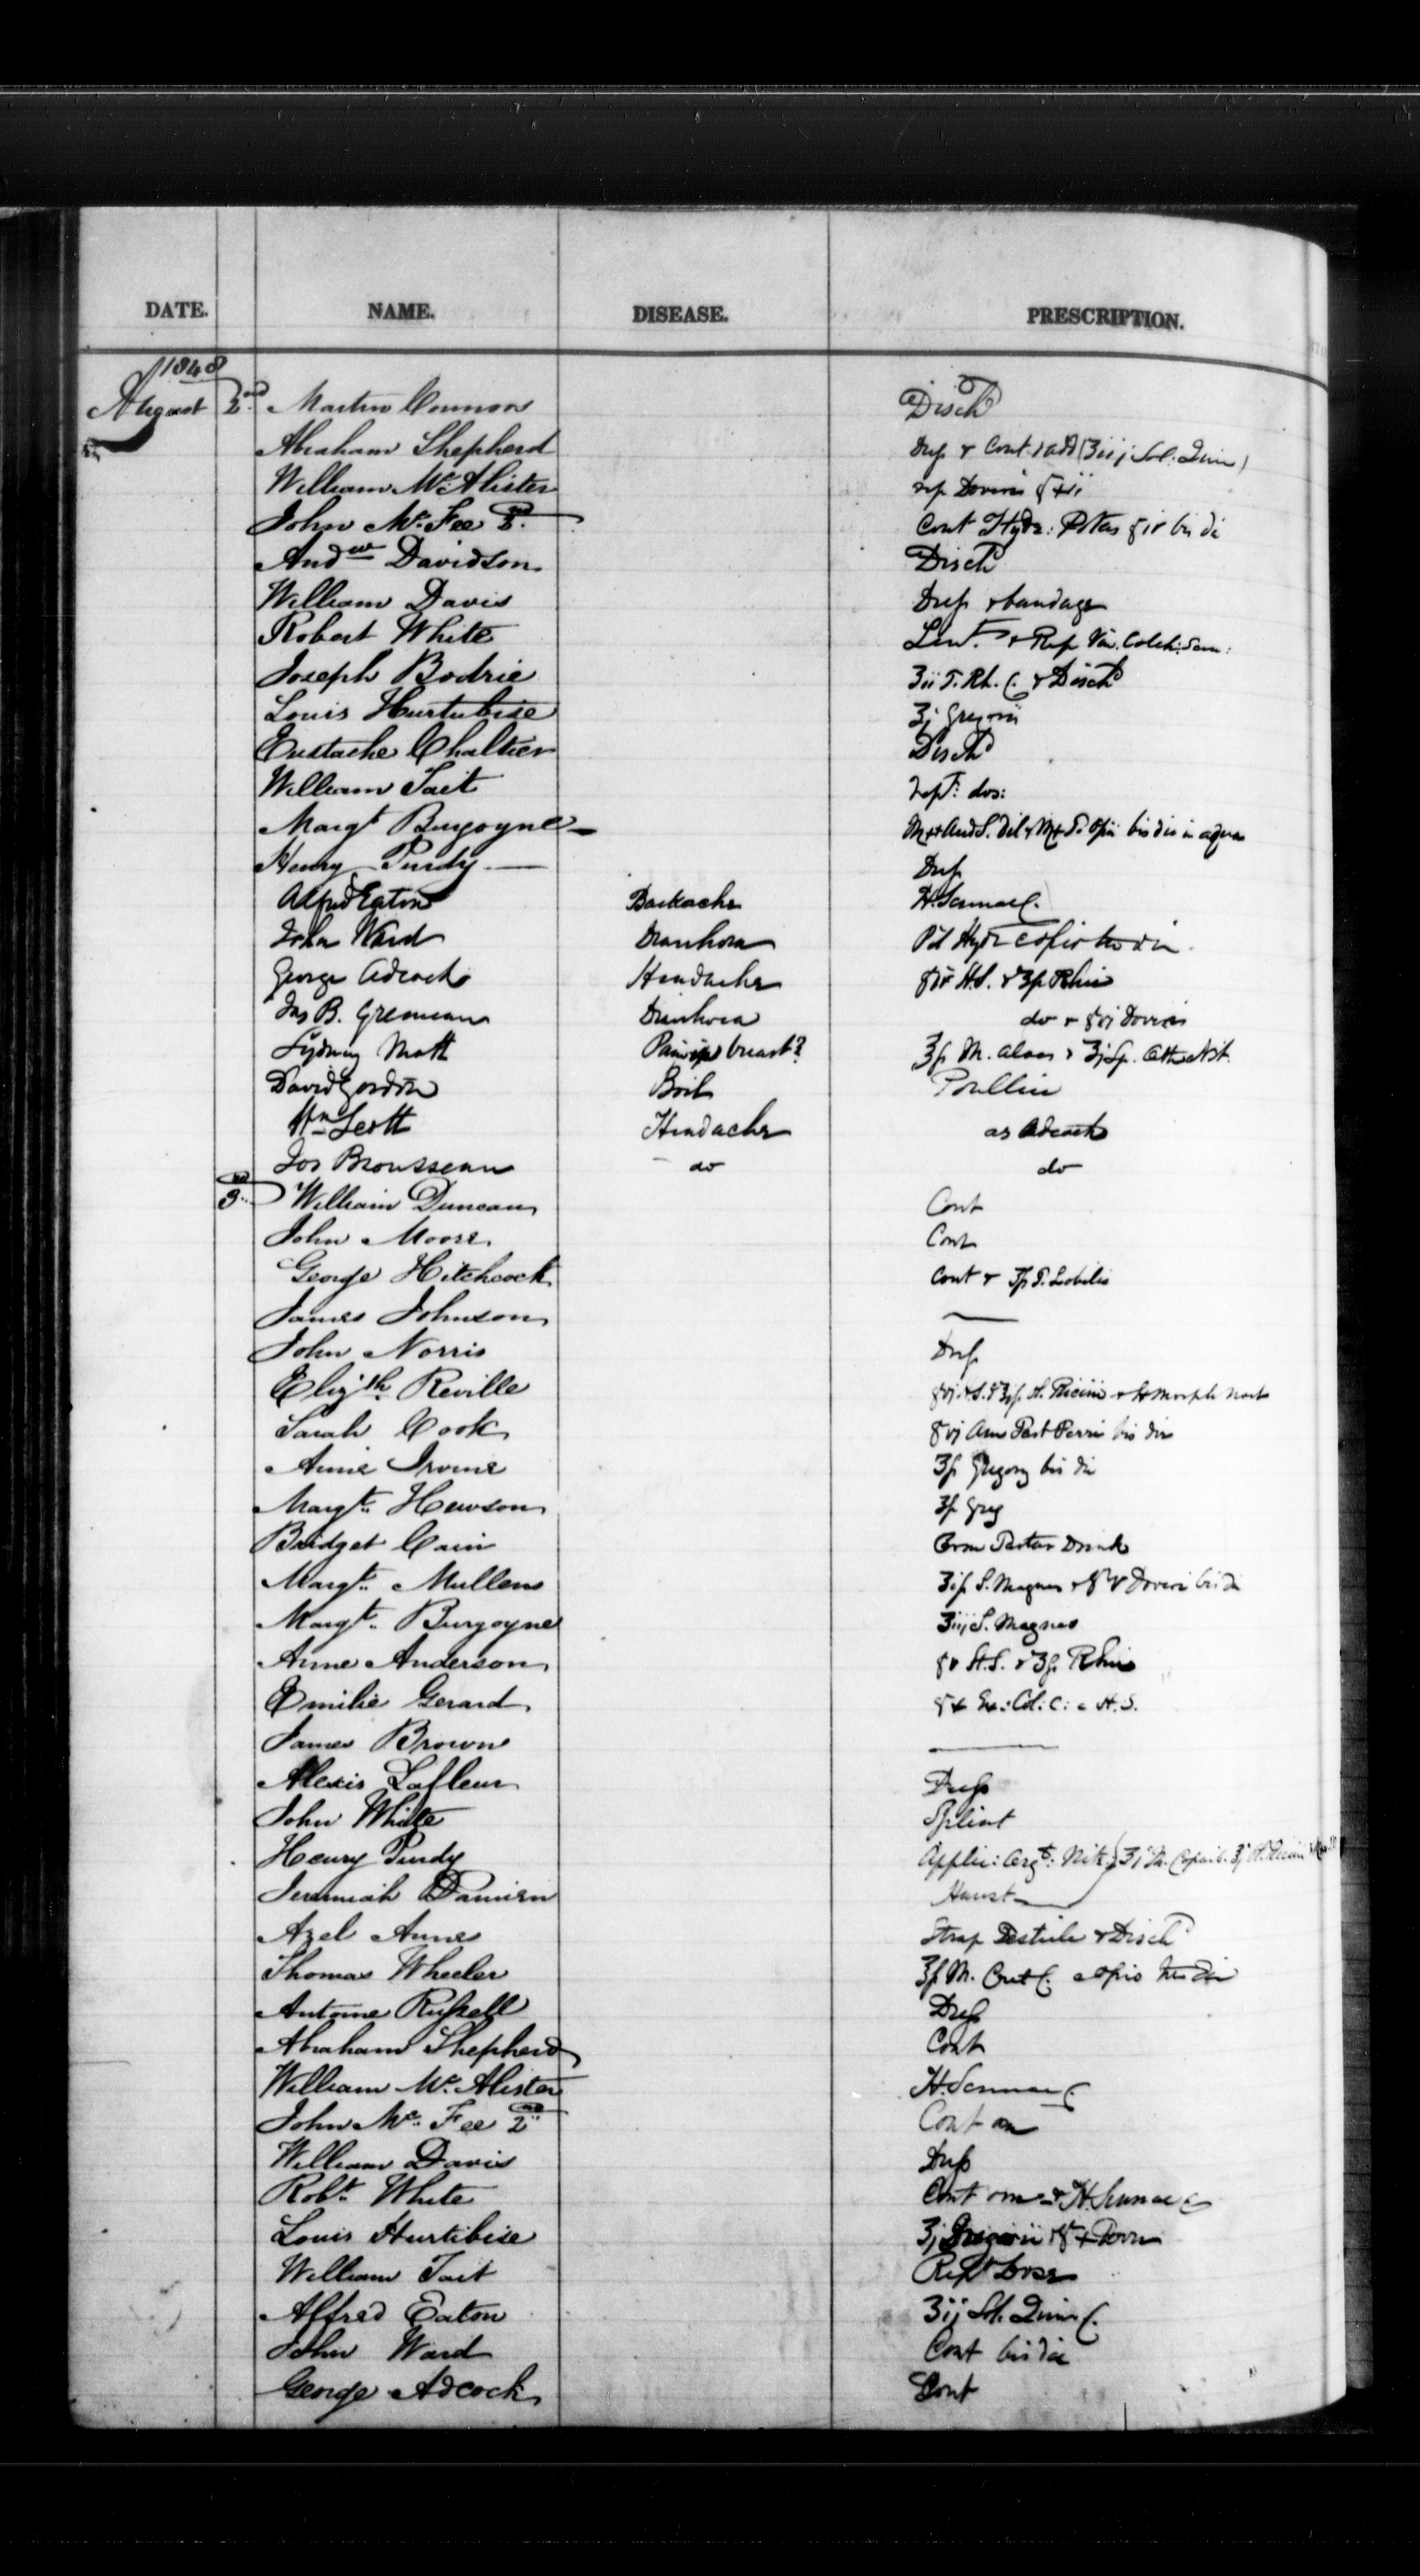 DATE. NAME. DISEASE. PRESCRIPTION.
1848
August 2nd Martin Connors Disch
Abraham Shepherd Dress & Cont
William McAlister rep Doveris
John Mc Fee 2nd Cont Hydr: Potas gr iv bis di
Andw Davidson Disch
William Davis Dress & bandage
Robert White & Rep Vin. Colch: Sem:
Joseph Bodrie ʒii T. Rh. C. & Disch
Louis Hurtubise ʒj Gregorii
Eustache Chaltier Disch
William Tait Rept: dos:
Margt Burgoyne bis die in aqua
Henry Purdy Dress
Alfred Eaton Backache H. Sennae C.
John Ward Diarrhoea Pil Hydr c opio ter die
George Adcock Headache H.S. & ʒss Rhei
Jas B. Grennan Diarrhoea do & gr vj Doveris
Sydney Mott Pain in breast?
David Gordon Boil Poultice
Wm Scott Headache as Adcock
Jos Brousseau do do
3rd William Duncan Cont
John Moore Cont
George Hitchcock Cont & T. Lobelia
James Johnson
John Norris Dress
Elizth Reville
Sarah Cook bis die
Annie Irvine ʒss Gregory bis die
Margt. Hewson ʒss Greg
Bridget Cain Crem Tartar Drink
Margt. Mullens S. Magnes & gr v Doveri bis di
Margt. Burgoyne ʒiij S. Magnes
Anne Anderson gr v H.S. & ʒss Rhei
Emilie Gerard gr x Ex: Col: C: c H.S.
James Brown
Alexis Lafleur Dress
John White Splint
Henry Purdy Applic: Argt: Nit:
Jeremiah Damien Haust
Azel Annes Strap Testicle & Disch
Thomas Wheeler ʒss M. Cret C. c opio ter die
Antoine Russell Dress
Abraham Shepherd Cont
William Mc. Alister H. Sennae C.
John Mc. Fee 2nd Cont om
William Davis Dress
Robt. White Cont om & H. Sennae C
Louis Hurtibise ʒj Gregorii & gr x Doveri
William Tait Rept Dose
Alfred Eaton ʒij Sol. Quin C.
John Ward Cont bis die
George Adcock Cont